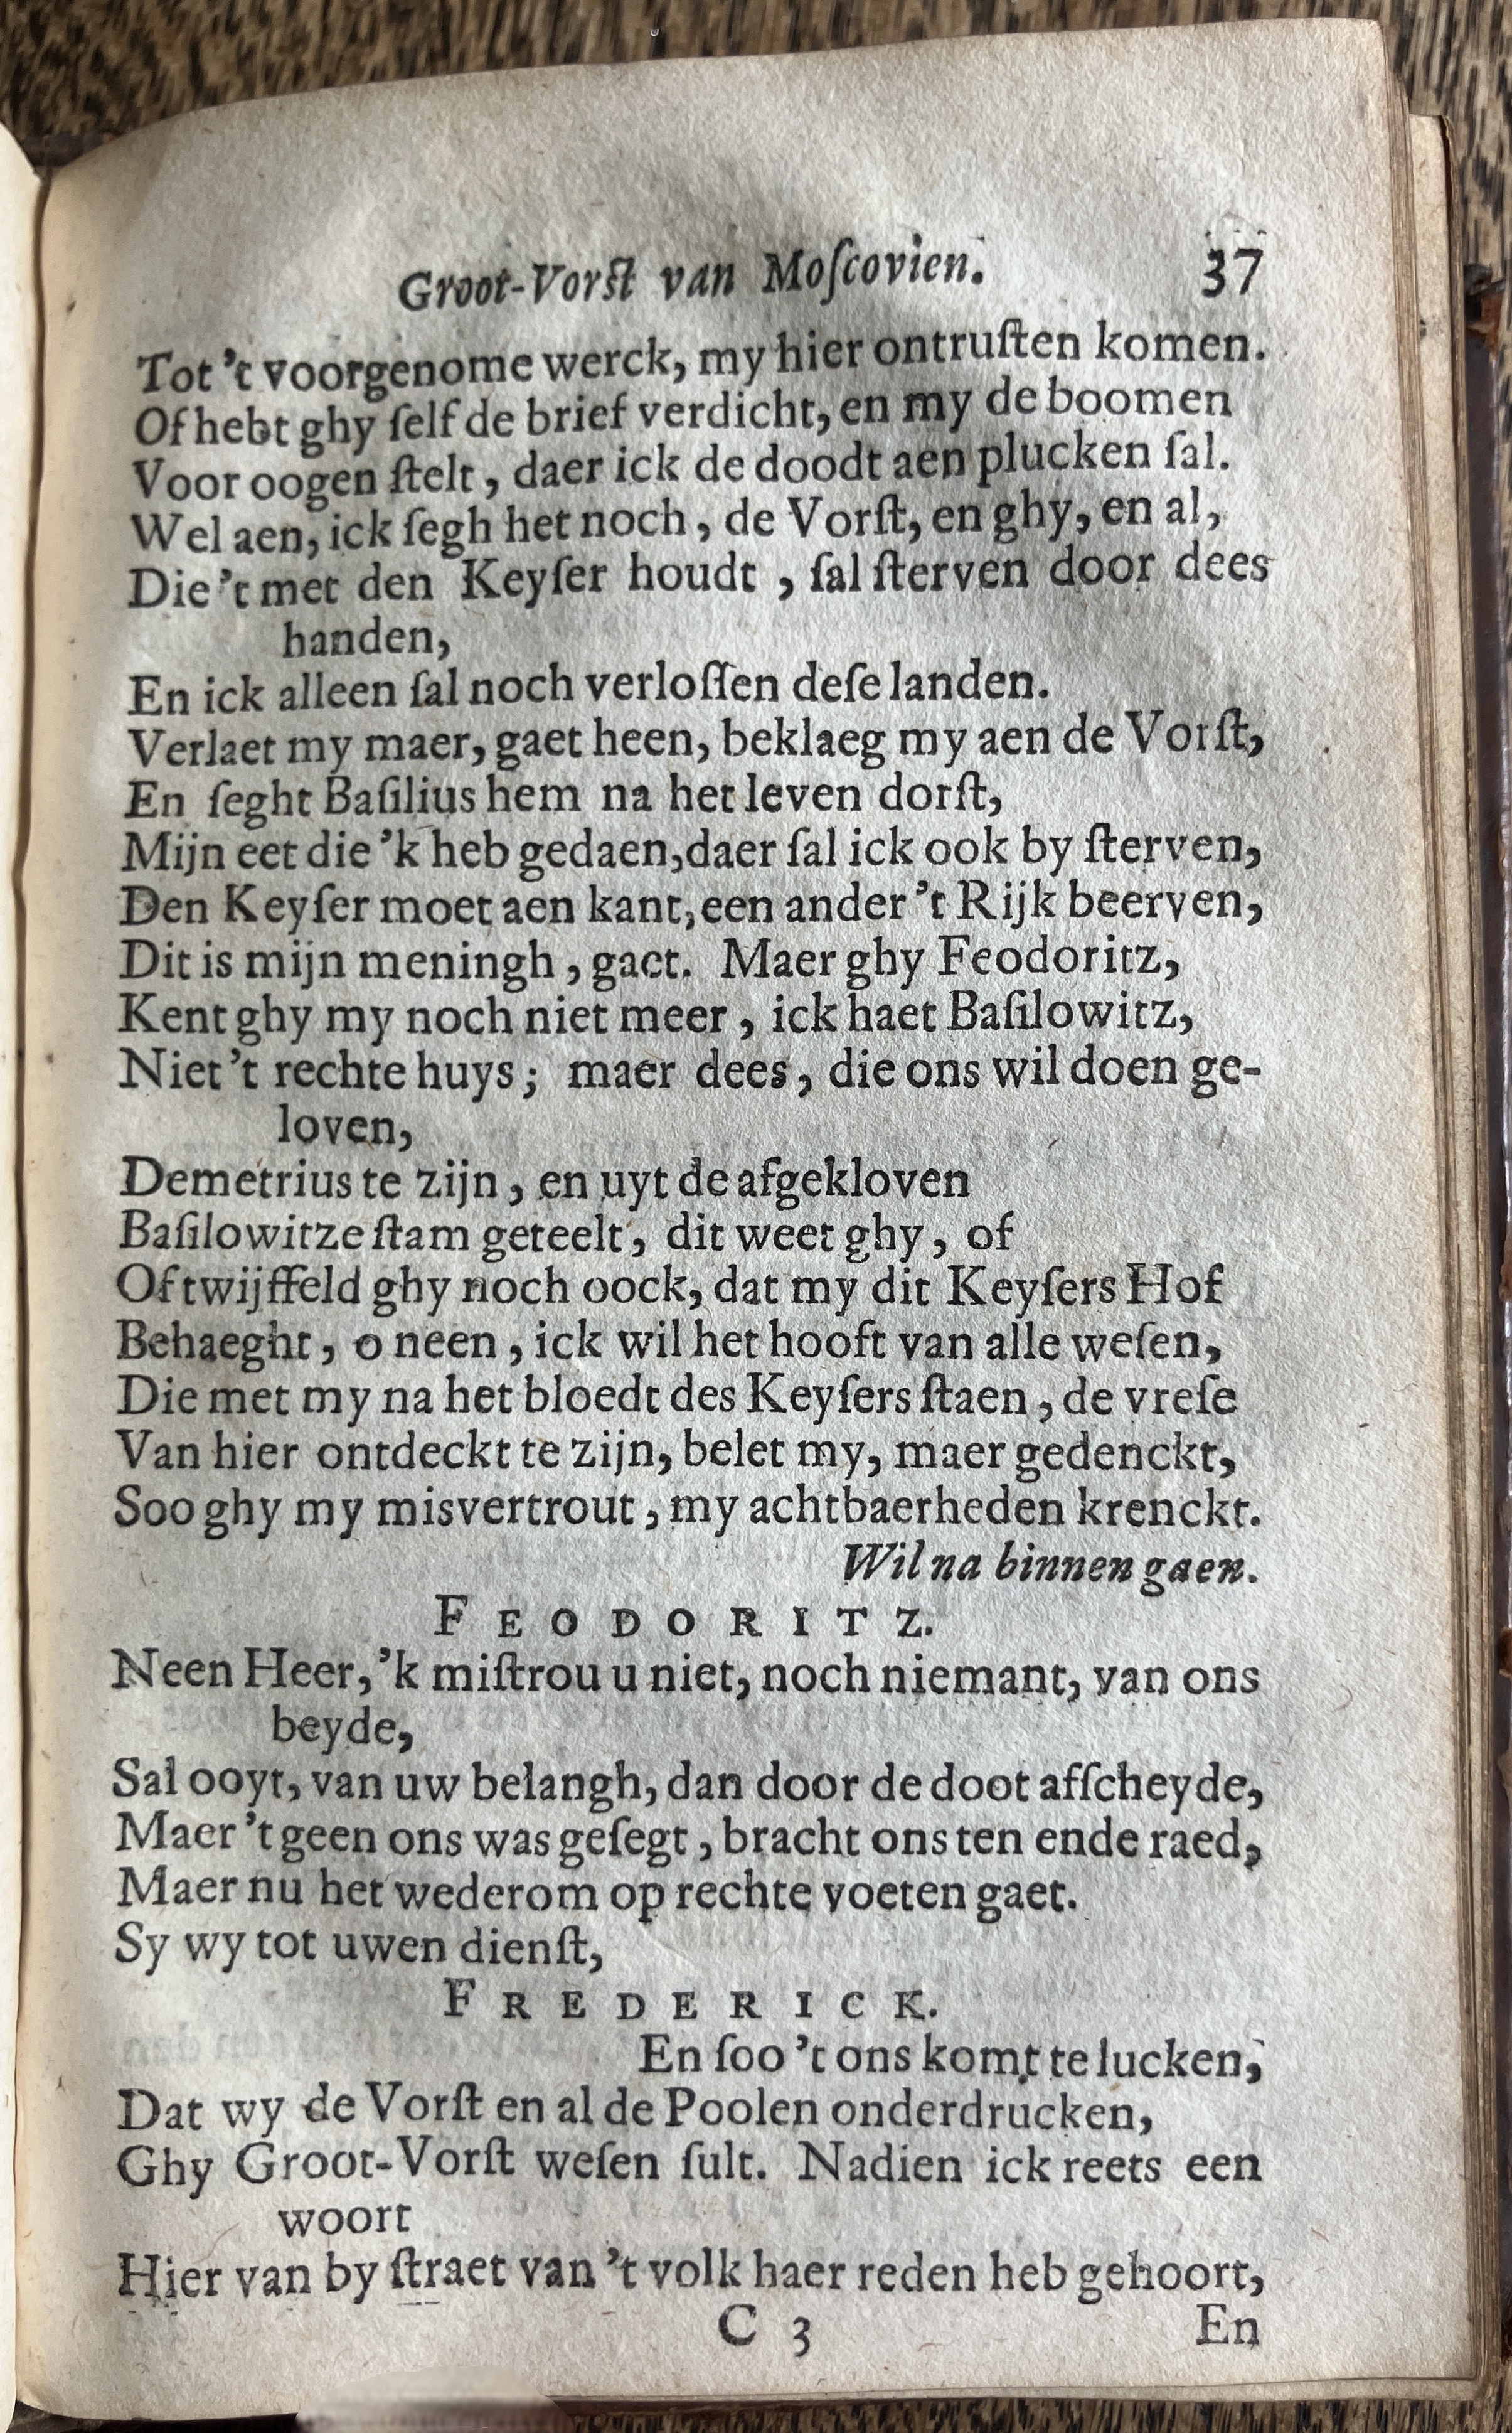 Groot-Vorſt van Moſcovien. 37
Tot 't voorgenome werck, my hier ontruſten komen.
Of hebt ghy ſelf de brief verdicht, en my de boomen
Voor oogen ſtelt, daer ick de doodt aen plucken ſal.
Wel aen, ick ſegh het noch, de Vorſt, en ghy, en al,
Die 't met den Keyſer houdt, ſal ſterven door dees
handen,
En ick alleen ſal noch verloſſen deſe landen.
Verlaet my maer, gaet heen, beklaeg my aen de Vorſt,
En ſeght Baſilius hem na het leven dorſt,
Mijn eet die 'k heb gedaen, daer ſal ick ook by ſterven,
Den Keyſer moet aen kant, een ander 't Rijk beerven,
Dit is mijn meningh, gaet. Maer ghy Feodoritz,
Kent ghy my noch niet meer, ick haet Baſilowitz,
Niet 't rechte huys; maer dees, die ons wil doen ge-
loven,
Demetrius te zijn, en uyt de afgekloven
Baſilowitze ſtam geteelt, dit weet ghy, of
Of twijffeld ghy noch oock, dat my dit Keyſers Hof
Behaeght, o neen, ick wil het hooft van alle weſen,
Die met my na het bloedt des Keyſers ſtaen, de vreſe
Van hier ontdeckt te zijn, belet my, maer gedenckt,
Soo ghy my misvertrout, my achtbaerheden krenckt.
Wil na binnen gaen.
FEODORITZ.
Neen Heer, 'k miſtrou u niet, noch niemant, van ons
beyde,
Sal ooyt, van uw belangh, dan door de doot afſcheyde,
Maer 't geen ons was geſegt, bracht ons ten ende raed,
Maer nu het wederom op rechte voeten gaet.
Sy wy tot uwen dienſt,
FREDERICK.
En ſoo 't ons komt te lucken,
Dat wy de Vorſt en al de Poolen onderdrucken,
Ghy Groot-Vorſt weſen ſult. Nadien ick reets een
woort
Hier van by ſtraet van 't volk haer reden heb gehoort,
C 3 En